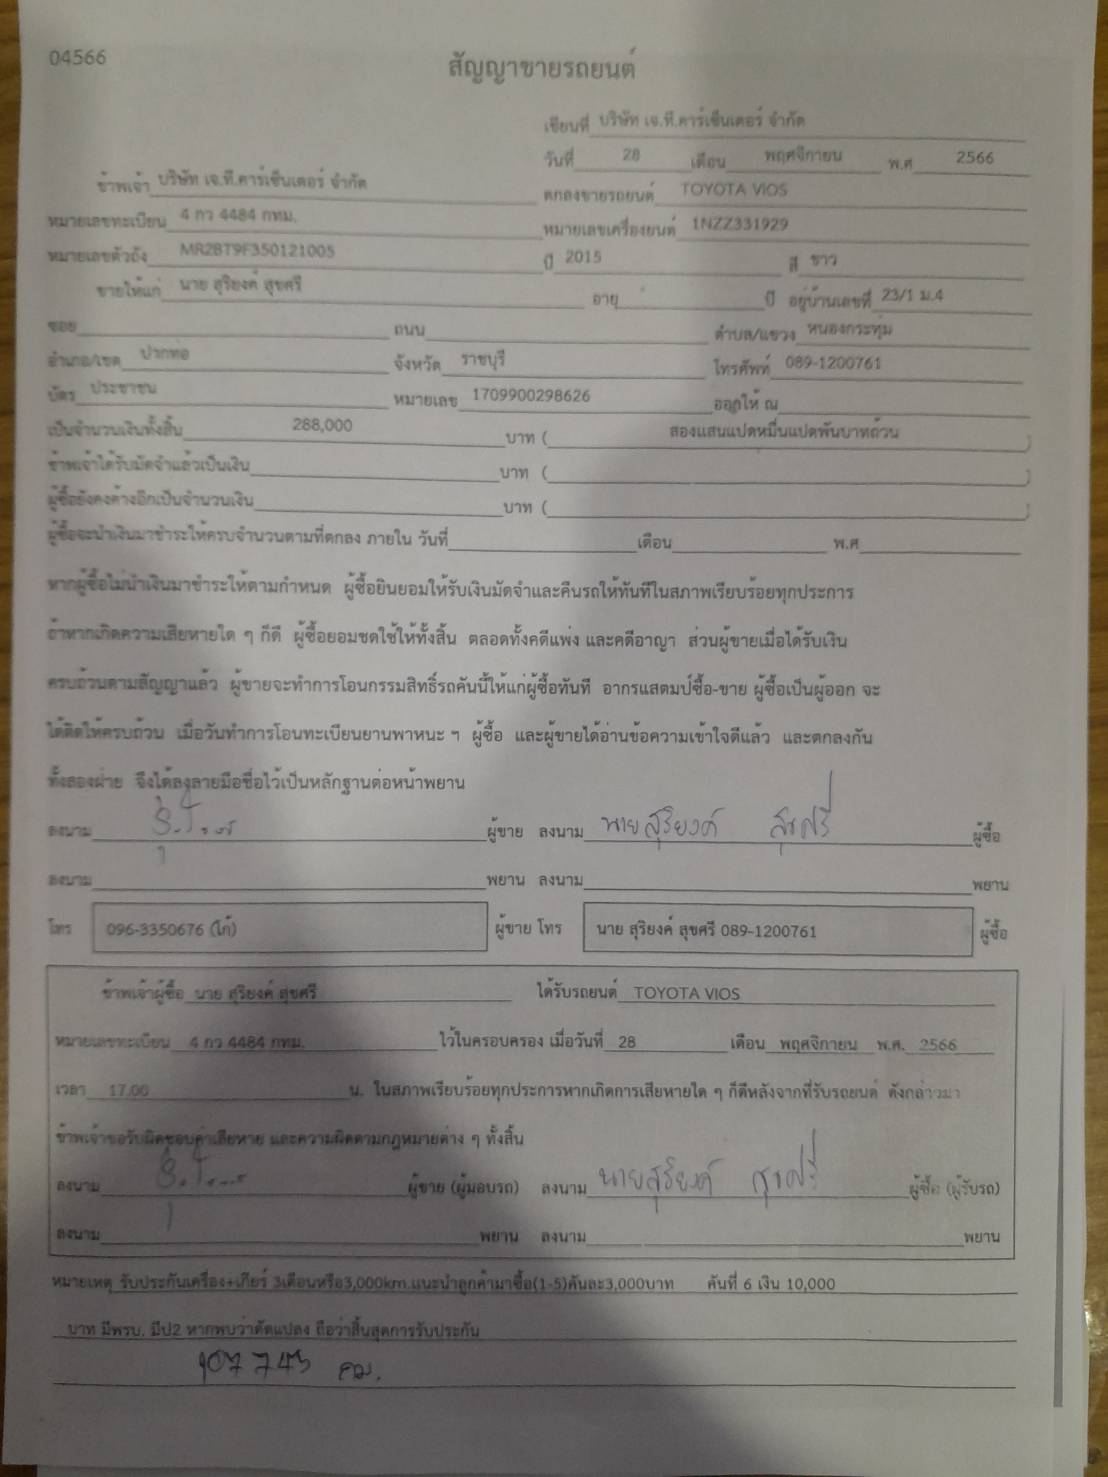 04566
สัญญาขายรถยนต์
เขียนที่ บริษัท เจ.ที.คาร์เซ็นเตอร์ จำกัด
วันที่ 28 เดือน พฤศจิกายน พ.ศ 2566
ข้าพเจ้า บริษัท เจ.ที.คาร์เซ็นเตอร์ จำกัด ตกลงขายรถยนต์ TOYOTA VIOS
หมายเลขทะเบียน 4 กว 4484 กทม. หมายเลขเครื่องยนต์ 1NZZ331929
หมายเลขตัวถัง MR2BT9F350121005 ปี 2015 สี ขาว
ขายให้แก่ นาย สุริยงค์ สุขศรี อายุ ปี อยู่บ้านเลขที่ 23/1 ม.4
ซอย ถนน ตำบล/แขวง หนองกระทุ่ม
อำเภอ/เขต ปากท่อ จังหวัด ราชบุรี โทรศัพท์ 089-1200761
บัตร ประชาชน หมายเลข 1709900298626 ออกให้ ณ
เป็นจำนวนเงินทั้งสิ้น 288,000 บาท ( สองแสนแปดหมื่นแปดพันบาทถ้วน )
ข้าพเจ้าได้รับมัดจำแล้วเป็นเงิน บาท ( )
ผู้ซื้อยังคงค้างอีกเป็นจำนวนเงิน บาท ( )
ผู้ซื้อจะนำเงินมาชำระให้ครบจำนวนตามที่ตกลง ภายใน วันที่ เดือน พ.ศ
หากผู้ซื้อไม่นำเงินมาชำระให้ตามกำหนด ผู้ซื้อยินยอมให้รับเงินมัดจำและคืนรถให้ทันทีในสภาพเรียบร้อยทุกประการ
ถ้าหากเกิดความเสียหายใด ๆ ก็ดี ผู้ซื้อยอมชดใช้ให้ทั้งสิ้น ตลอดทั้งคดีแพ่ง และคดีอาญา ส่วนผู้ขายเมื่อได้รับเงิน
ครบถ้วนตามสัญญาแล้ว ผู้ขายจะทำการโอนกรรมสิทธิ์รถคันนี้ให้แก่ผู้ซื้อทันที อากรแสตมป์ซื้อ-ขาย ผู้ซื้อเป็นผู้ออก จะ
ได้ติดให้ครบถ้วน เมื่อวันทำการโอนทะเบียนยานพาหนะ ฯ ผู้ซื้อ และผู้ขายได้อ่านข้อความเข้าใจดีแล้ว และตกลงกัน
ทั้งสองฝ่าย จึงได้ลงลายมือชื่อไว้เป็นหลักฐานต่อหน้าพยาน
ลงนาม ผู้ขาย ลงนาม นายสุริยงค์ สุขศรี ผู้ซื้อ
ลงนาม พยาน ลงนาม พยาน
โทร 096-3350676 (โก้) ผู้ขาย โทร นาย สุริยงค์ สุขศรี 089-1200761 ผู้ซื้อ
ข้าพเจ้าผู้ซื้อ นาย สุริยงค์ สุขศรี ได้รับรถยนต์ TOYOTA VIOS
หมายเลขทะเบียน 4 กว 4484 กทม. ไว้ในครอบครอง เมื่อวันที่ 28 เดือน พฤศจิกายน พ.ศ. 2566
เวลา 17.00 น. ในสภาพเรียบร้อยทุกประการหากเกิดการเสียหายใด ๆ ก็ดีหลังจากที่รับรถยนต์ ดังกล่าวมา
ข้าพเจ้าขอรับผิดชอบค่าเสียหาย และความผิดตามกฎหมายต่าง ๆ ทั้งสิ้น
ลงนาม ผู้ขาย (ผู้มอบรถ) ลงนาม นายสุริยงค์ สุขศรี ผู้ซื้อ (ผู้รับรถ)
ลงนาม พยาน ลงนาม พยาน
หมายเหตุ รับประกันเครื่อง+เกียร์ 3เดือนหรือ3,000km.แนะนำลูกค้ามาซื้อ(1-5)คันละ3,000บาท คันที่ 6 เงิน 10,000
บาท มีพรบ. มีป2 หากพบว่าดัดแปลง ถือว่าสิ้นสุดการรับประกัน
107 743 กม.